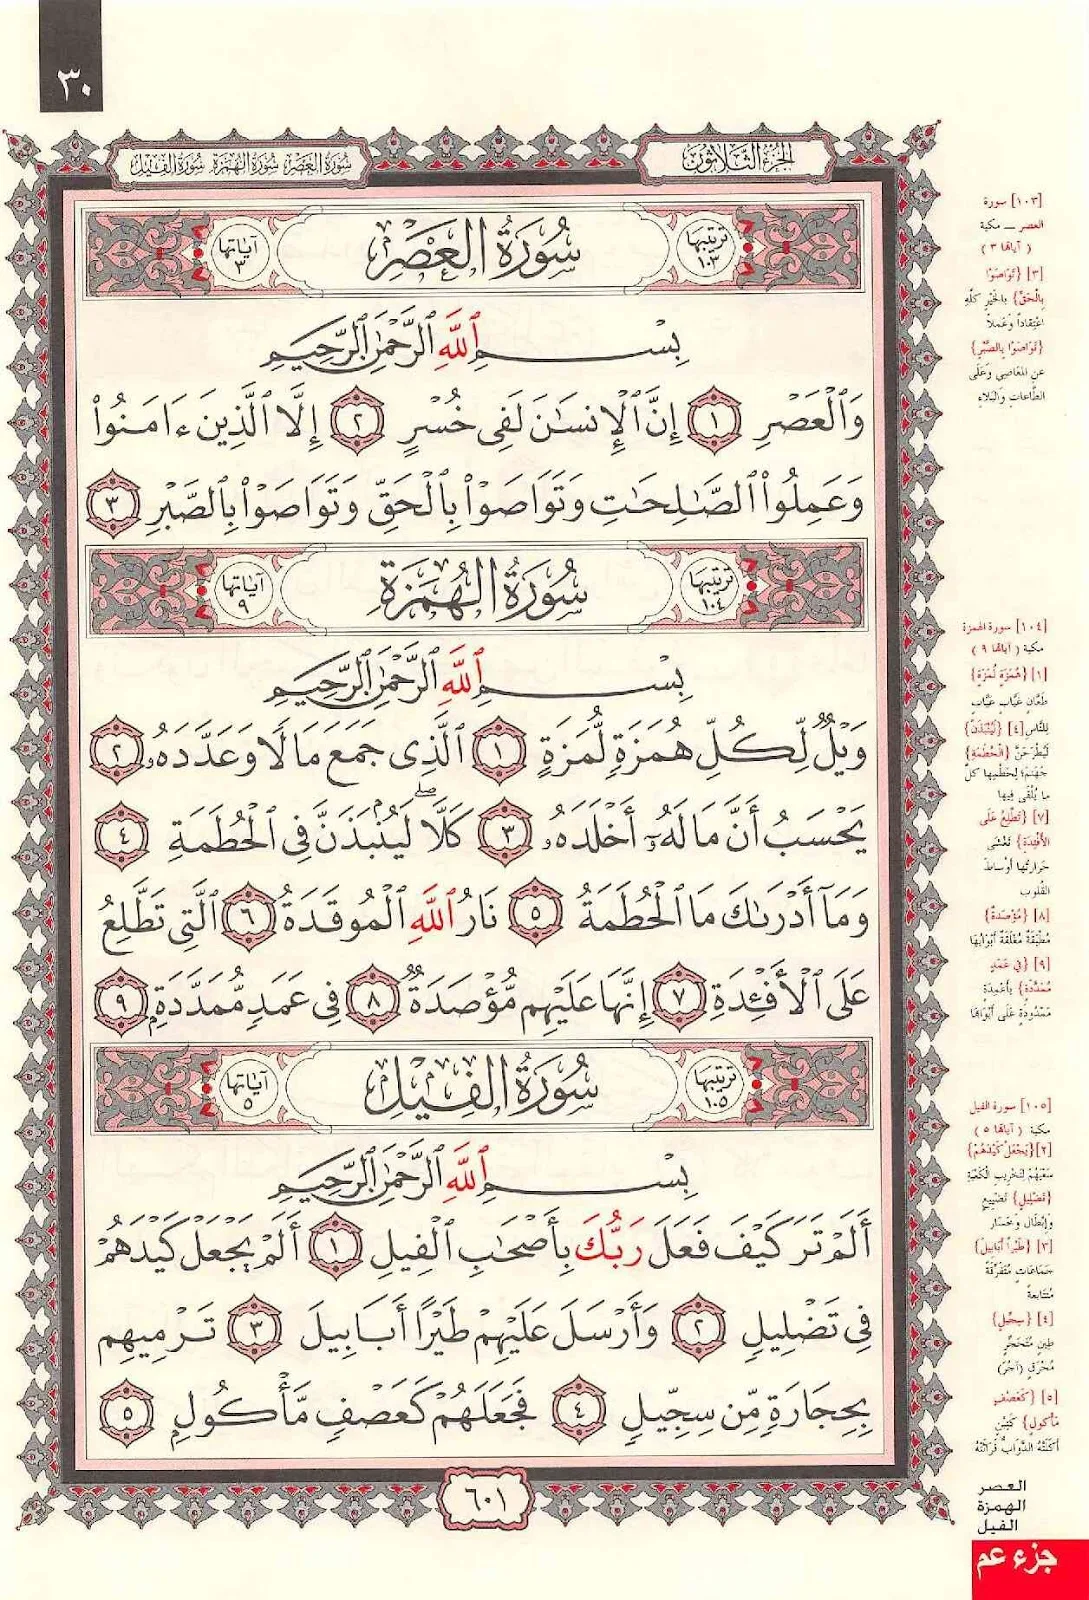 ٣٠
الجزء الثلاثون
سورة العصر سورة الهمزة سورة الفيل
ترتيبها ١٠٣
سُورَةُ العَصْرِ
آياتها ٣
بِسْمِ ٱللَّهِ ٱلرَّحْمَٰنِ ٱلرَّحِيمِ
وَٱلْعَصْرِ ١ إِنَّ ٱلْإِنسَٰنَ لَفِى خُسْرٍ ٢ إِلَّا ٱلَّذِينَ ءَامَنُوا۟
وَعَمِلُوا۟ ٱلصَّٰلِحَٰتِ وَتَوَاصَوْا۟ بِٱلْحَقِّ وَتَوَاصَوْا۟ بِٱلصَّبْرِ ٣
ترتيبها ١٠٤
سُورَةُ الهُمَزَةِ
آياتها ٩
بِسْمِ ٱللَّهِ ٱلرَّحْمَٰنِ ٱلرَّحِيمِ
وَيْلٌ لِّكُلِّ هُمَزَةٍ لُّمَزَةٍ ١ ٱلَّذِى جَمَعَ مَالًا وَعَدَّدَهُۥ ٢
يَحْسَبُ أَنَّ مَالَهُۥٓ أَخْلَدَهُۥ ٣ كَلَّا ۖ لَيُنۢبَذَنَّ فِى ٱلْحُطَمَةِ ٤
وَمَآ أَدْرَىٰكَ مَا ٱلْحُطَمَةُ ٥ نَارُ ٱللَّهِ ٱلْمُوقَدَةُ ٦ ٱلَّتِى تَطَّلِعُ
عَلَى ٱلْأَفْـِٔدَةِ ٧ إِنَّهَا عَلَيْهِم مُّؤْصَدَةٌ ٨ فِى عَمَدٍ مُّمَدَّدَةٍۭ ٩
ترتيبها ١٠٥
سُورَةُ الفِيلِ
آياتها ٥
بِسْمِ ٱللَّهِ ٱلرَّحْمَٰنِ ٱلرَّحِيمِ
أَلَمْ تَرَ كَيْفَ فَعَلَ رَبُّكَ بِأَصْحَٰبِ ٱلْفِيلِ ١ أَلَمْ يَجْعَلْ كَيْدَهُمْ
فِى تَضْلِيلٍ ٢ وَأَرْسَلَ عَلَيْهِمْ طَيْرًا أَبَابِيلَ ٣ تَرْمِيهِم
بِحِجَارَةٍ مِّن سِجِّيلٍ ٤ فَجَعَلَهُمْ كَعَصْفٍ مَّأْكُولٍۭ ٥
٦٠١
[١٠٣] سورة
العصر ــ مكية
( آياتها ٣ )
[٣] {تَوَاصَوْا
بِالْحَقِّ} بِالخَيْرِ كلِّهِ
اعْتِقاداً وَعَملاً
{تَوَاصَوْا بِالصَّبْرِ}
عن المعَاصِي وَعَلَى
الطَّاعاتِ وَالبَلاءِ
[١٠٤] سورة الهمزة
مكية ( آياتها ٩ )
[١] {هُمَزَةٍ لُمَزَةٍ}
طَعَّانٍ عَيَّابٍ
لِلنَّاس [٤] {لَيُنْبَذَنَّ}
لَيُطْرَحَنَّ {الْحُطَمَةِ}
جَهَنَّمَ؛ لِحَطْمِها كلَّ
ما يُلْقَى فِيها
[٧] {تَطَّلِعُ عَلَى
الأَفْئِدَةِ} تَغْشَى
حَرارَتُها أَوْساطَ
القُلوب
[٨] {مُؤْصَدَةٌ}
مُطْبَقَةٌ مُغْلَقَةٌ أَبْوَابُها
[٩] {فِي عَمَدٍ
مُمَدَّدَةٍ} بِأَعْمِدَةٍ
مَمْدُودَةٍ عَلَى أَبْوَابِهَا
[١٠٥] سورة الفيل
مكية ( آياتها ٥ )
[٢] {يَجْعَلْ كَيْدَهُمْ}
سَعْيَهُمْ لِتَخْرِيبِ الكَعْبَةِ
{تَضْلِيلٍ} تَضْيِيعٍ
وَإِبْطَالٍ وَخَسَارٍ
[٣] {طَيْراً أَبَابِيلَ}
جَمَاعَاتٍ مُتَفَرِّقَةً
مُتَتَابِعةً
[٤] {سِجِّيلٍ}
طِينٍ مُتَحَجِّرٍ
مُحْرَقٍ (آجُرّ)
[٥] {كَعَصْفٍ
مَأْكولٍ} كَتِبْنٍ
أَكَلَتْهُ الدَّوَابُّ فَرَاثَتْهُ
العصر
الهمزة
الفيل
جزء عم